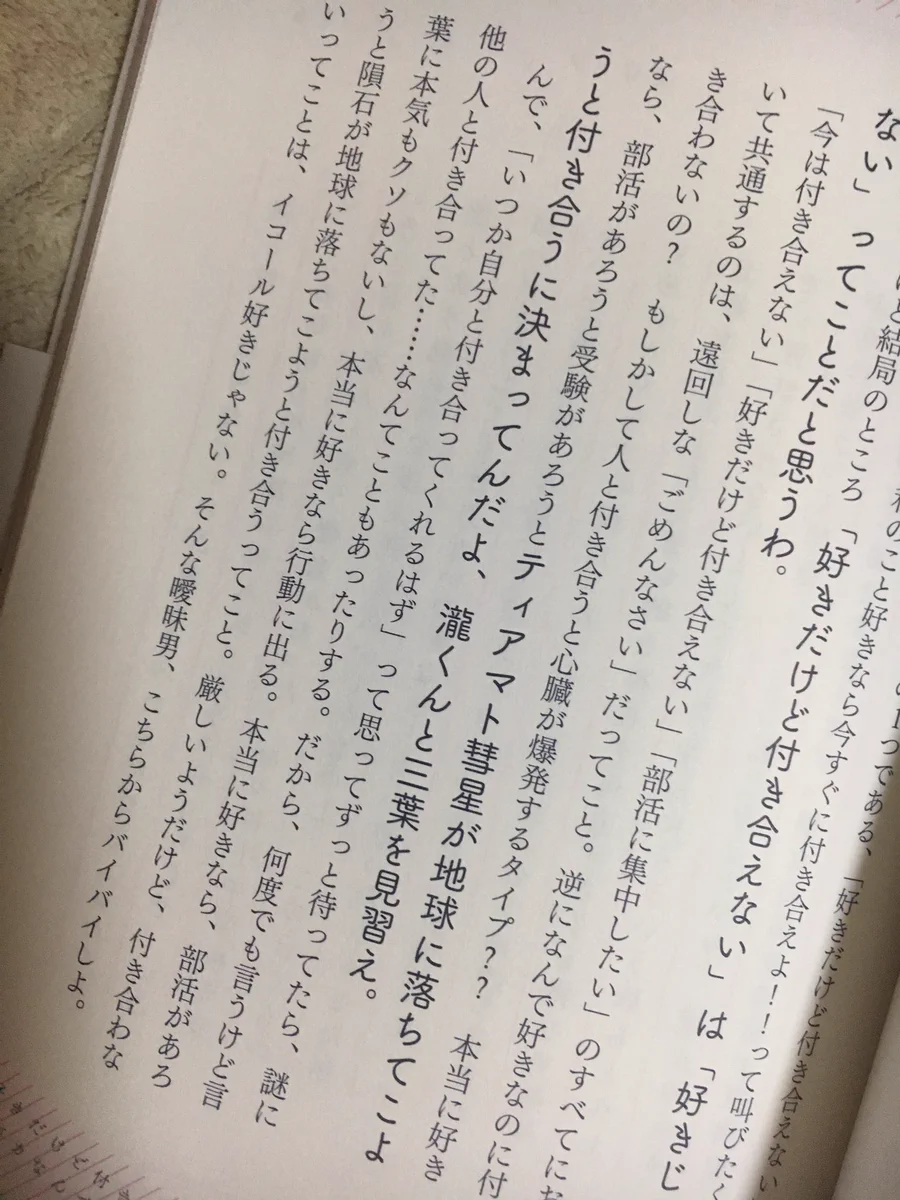 の1つである、「好きだけど付き合えない
のこと好きなら今すぐに付き合えよ！！って叫びたく
けど結局のところ「好きだけど付き合えない」は「好きじ
ない」ってことだと思うわ。
「今は付き合えない」「好きだけど付き合えない」「部活に集中したい」のすべてにお
いて共通するのは、遠回しな「ごめんなさい」だってこと。逆になんで好きなのに付
き合わないの？　もしかして人と付き合うと心臓が爆発するタイプ？？　本当に好き
なら、部活があろうと受験があろうとティアマト彗星が地球に落ちてこよ
うと付き合うに決まってんだよ、瀧くんと三葉を見習え。
んで、「いつか自分と付き合ってくれるはず」って思ってずっと待ってたら、謎に
他の人と付き合ってた……なんてこともあったりする。だから、何度でも言うけど言
葉に本気もクソもないし、本当に好きなら行動に出る。本当に好きなら、部活があろ
うと隕石が地球に落ちてこようと付き合うってこと。厳しいようだけど、付き合わな
いってことは、イコール好きじゃない。そんな曖昧男、こちらからバイバイしよ。